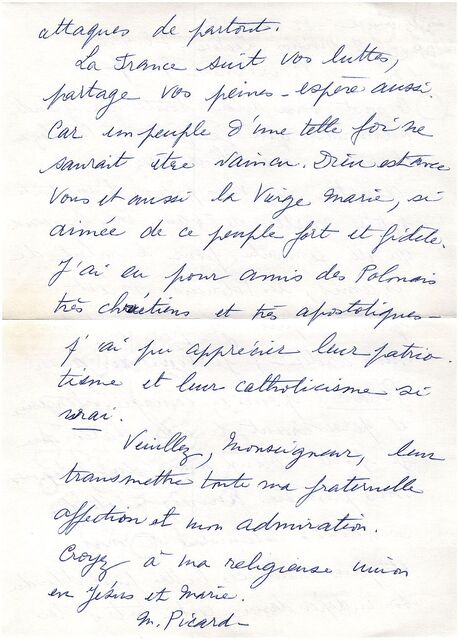 attaques de partout.
La France suit vos luttes,
partage vos peines - espère aussi.
Car un peuple d'une telle foi ne
saurait être vaincu. Dieu est avec
vous et aussi la Vierge Marie, si
aimée de ce peuple fort et fidèle.
J'ai eu pour amis des Polonais
très chrétiens et très apostoliques -
j'ai pu apprécier leur patrio-
tisme et leur catholicisme si
vrai.
Veuillez, Monseigneur, leur
transmettre toute ma fraternelle
affection et mon admiration.
Croyez à ma religieuse union
en Jésus et Marie.
M. Picard -